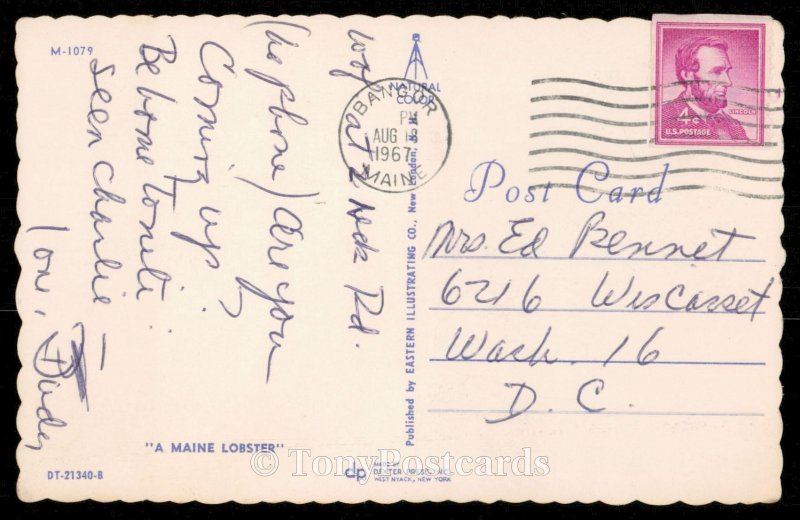 M-1079
NATURAL
COLOR
BANGOR
PM
AUG 18
1967
MAINE
LINCOLN
4¢
U.S. POSTAGE
Post Card
at 2 Rd.
(No phone) are you
Coming up?
Be home
Seen Charlie
Love,
Mrs. Ed Bennet
6216 Wiscasset
Wash. 16
D. C.
Published by EASTERN ILLUSTRATING CO., New London, N. H.
"A MAINE LOBSTER"
DT-21340-B
dp
MADE BY
DEXTER PRESS, INC.
WEST NYACK, NEW YORK
© TonyPostcards